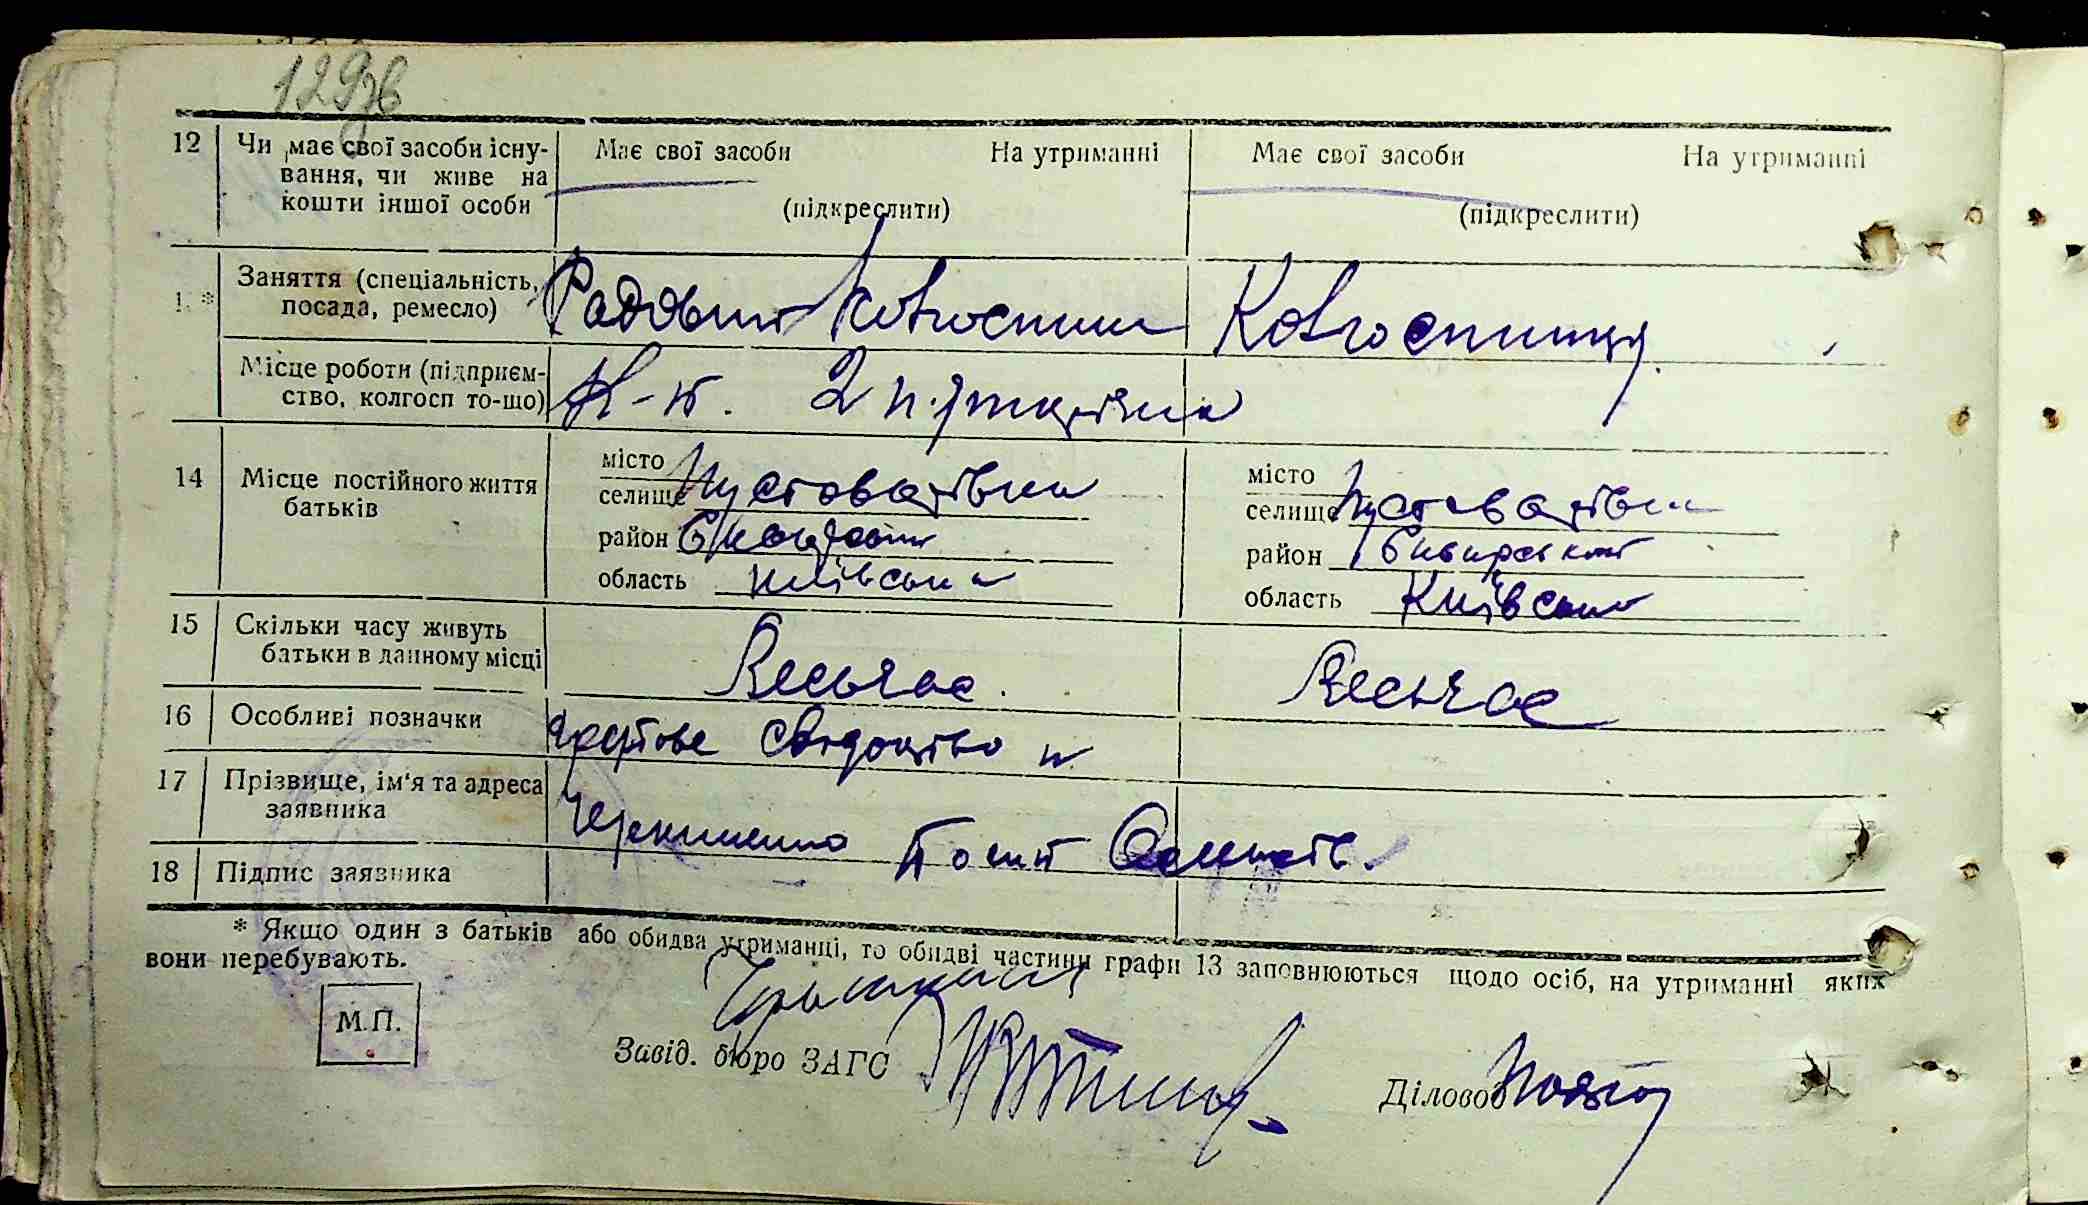 129зв
12 Чи має свої засоби існу- Має свої засоби На утриманні Має свої засоби На утриманні
вання, чи живе на
кошти іншої особи (підкреслити) (підкреслити)
Заняття (спеціальність, Радовий Ковгоспник Ковгоспниця
посада, ремесло)
Місце роботи (підприєм- К-п. 2 п'ятирічка
ство, колгосп то-що)
14 Місце постійного життя місто місто
батьків селище Пустоварівка селище Пустоварівка
район Сквирський район Сквирський
область Київська область Київська
15 Скільки часу живуть Весь час Весь час
батьки в данному місці
16 Особливі позначки свідоцтво
17 Прізвище, ім'я та адреса
заявника
18 Підпис заявника
* Якщо один з батьків або обидва утриманці, то обидві частини графи 13 заповнюються щодо осіб, на утриманні яких
вони перебувають.
М.П.
Завід. бюро ЗАГС Діловод